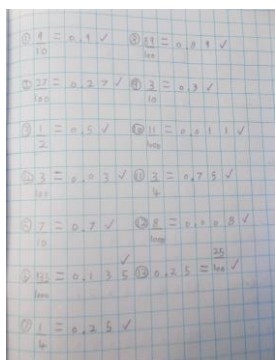 ① 9/10 = 0.9 ✓
② 27/100 = 0.27 ✓
③ 1/2 = 0.5 ✓
④ 3/100 = 0.03 ✓
⑤ 7/10 = 0.7 ✓
⑥ 135/1000 = 0.135 ✓
⑦ 1/4 = 0.25 ✓
⑧ 89/100 = 0.89 ✓
⑨ 3/10 = 0.3 ✓
⑩ 11/1000 = 0.011 ✓
⑪ 3/4 = 0.75 ✓
⑫ 8/1000 = 0.008 ✓
⑬ 0.25 = 25/100 ✓